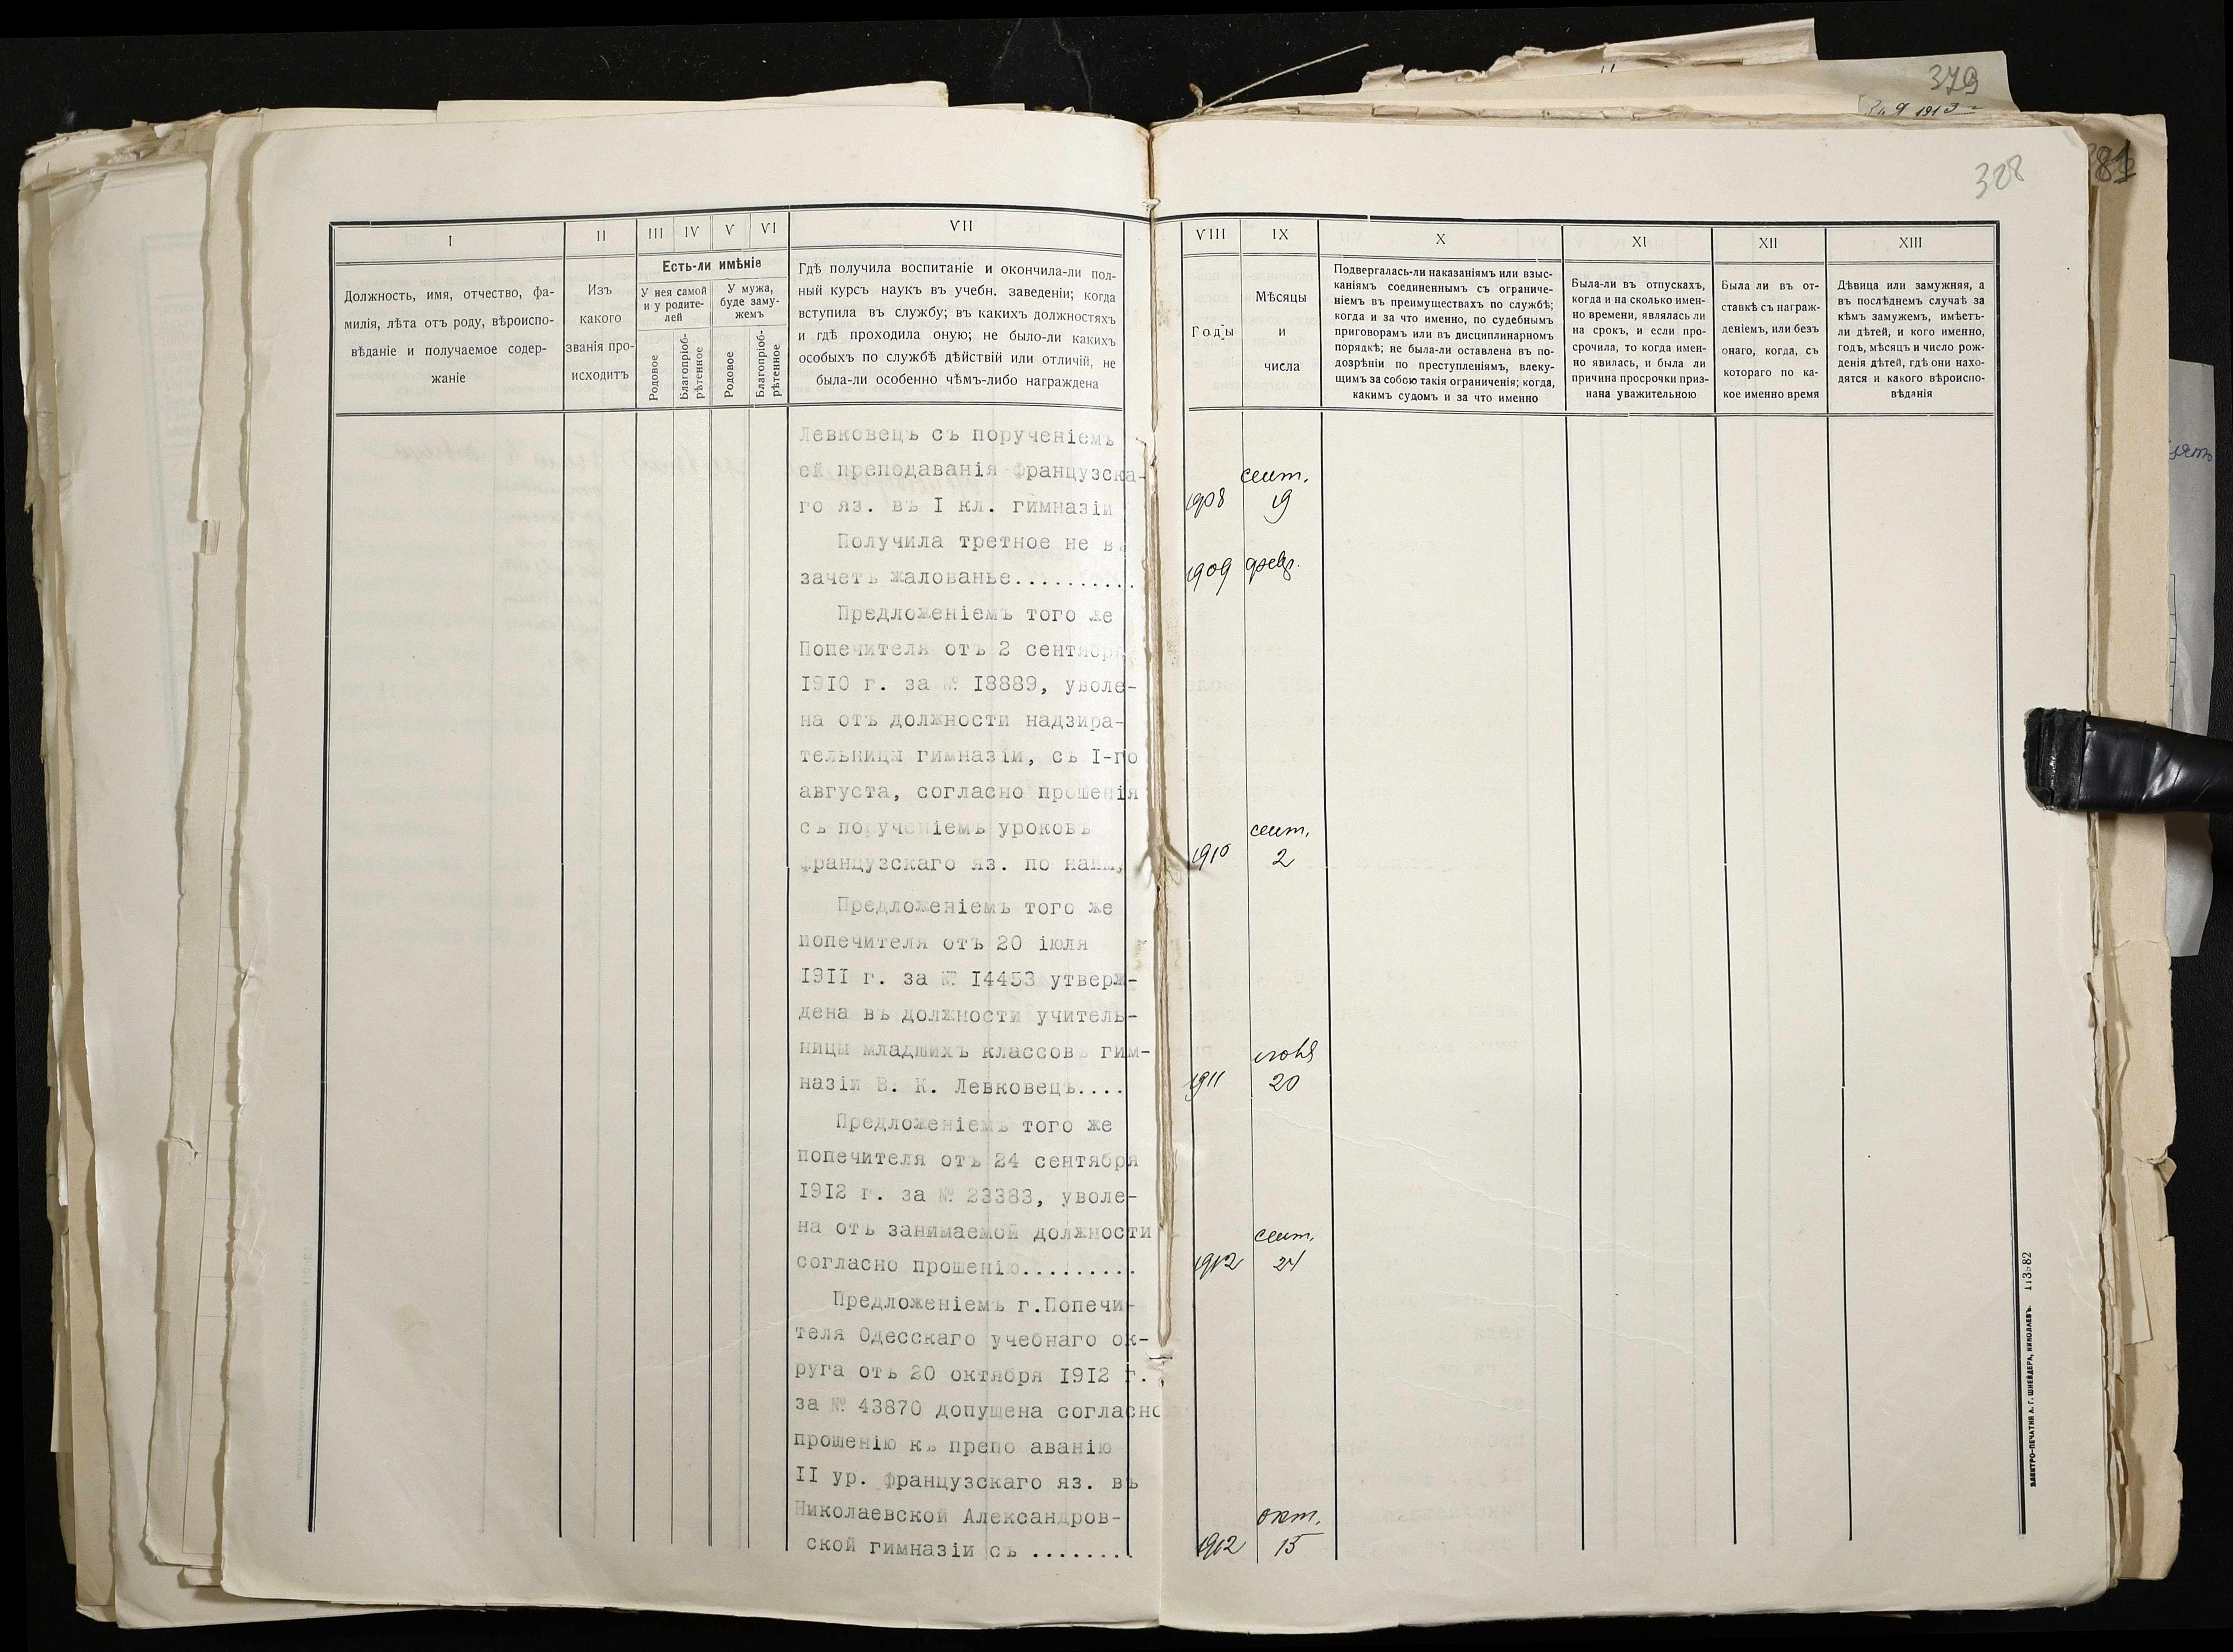 379
1913
381
328
I
II
III
IV
V
VI
VII
VIII
IX
X
XI
XII
XIII
Должность, имя, отчество, фа-
милія, лѣта отъ роду, вѣроиспо-
вѣданіе и получаемое содер-
жаніе
Изъ
какого
званія про-
исходитъ
Есть-ли имѣніе
У нея самой
и у родите-
лей
У мужа,
буде заму-
жемъ
Родовое
Благопріоб-
рѣтенное
Родовое
Благопріоб-
рѣтенное
Гдѣ получила воспитаніе и окончила-ли пол-
ный курсъ наукъ въ учебн. заведеніи; когда
вступила въ службу; въ какихъ должностяхъ
и гдѣ проходила оную; не было-ли какихъ
особыхъ по службѣ дѣйствій или отличій, не
была-ли особенно чѣмъ-либо награждена
Годы
Мѣсяцы
и
числа
Подвергалась-ли наказаніямъ или взыс-
каніямъ соединеннымъ съ ограниче-
ніемъ въ преимуществахъ по службѣ;
когда и за что именно, по судебнымъ
приговорамъ или въ дисциплинарномъ
порядкѣ; не была-ли оставлена въ по-
дозрѣніи по преступленіямъ, влеку-
щимъ за собою такія ограниченія; когда,
какимъ судомъ и за что именно
Была-ли въ отпускахъ,
когда и на сколько имен-
но времени, являлась ли
на срокъ, и если про-
срочила, то когда имен-
но явилась, и была ли
причина просрочки приз-
нана уважительною
Была ли въ от-
ставкѣ съ награж-
деніемъ, или безъ
онаго, когда, съ
котораго по ка-
кое именно время
Дѣвица или замужняя, а
въ послѣднемъ случаѣ за
кѣмъ замужемъ, имѣетъ-
ли дѣтей, и кого именно,
годъ, мѣсяцъ и число рож-
денія дѣтей, гдѣ они нахо-
дятся и какого вѣроиспо-
вѣданія
Левковецъ съ порученіемъ
ей преподаванія французска-
го яз. въ I кл. гимназіи
1908 сент. 19
Получила третное не въ
зачетъ жалованье..........
1909 февр.
Предложеніемъ того же
Попечителя отъ 2 сентября
1910 г. за № 18889, уволе-
на отъ должности надзира-
тельницы гимназіи, съ I-го
августа, согласно прошенія
съ порученіемъ уроковъ
французскаго яз. по найму
1910 сент. 2
Предложеніемъ того же
попечителя отъ 20 іюля
1911 г. за № 14453 утверж-
дена въ должности учитель-
ницы младшихъ классовъ гим-
назіи В. К. Левковецъ....
1911 іюля 20
Предложеніемъ того же
попечителя отъ 24 сентября
1912 г. за № 23383, уволе-
на отъ занимаемой должности
согласно прошенію.........
1912 сент. 24
Предложеніемъ г.Попечи-
теля Одесскаго учебнаго ок-
руга отъ 20 октября 1912 г.
за № 43870 допущена согласно
прошенію къ препо аванію
II ур. французскаго яз. въ
Николаевской Александров-
ской гимназіи съ ........
1912 окт. 15
ЭЛЕКТРО-ПЕЧАТНЯ А. Г. ШНЕЙДЕРА, НИКОЛАЕВЪ.